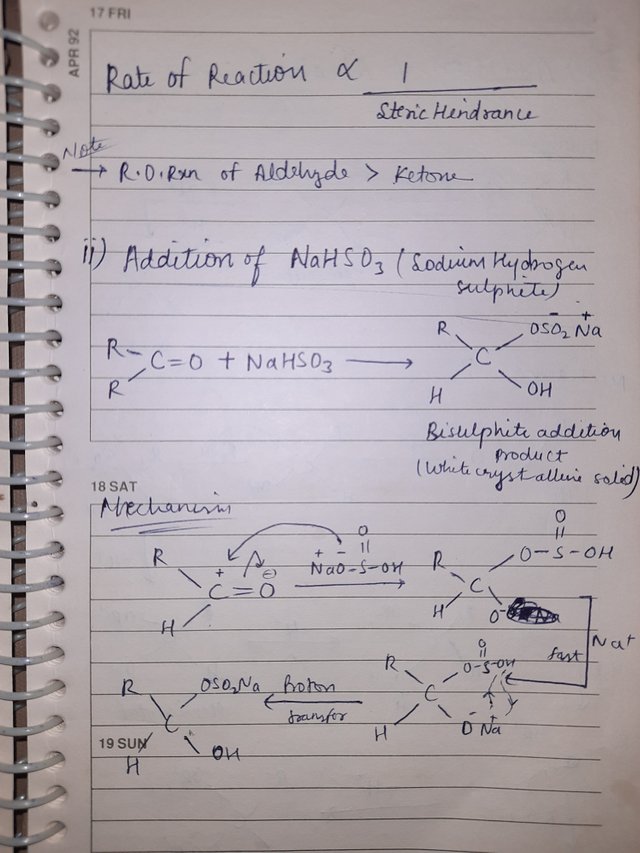 17 FRI
APR 92
Rate of Reaction ∝ 1
Steric Hindrance
Note
→ R.O.Rxn of Aldehyde > Ketone
ii) Addition of NaHSO3 (Sodium Hydrogen
sulphite)
R
R
C=O + NaHSO3 →
R
H
C
OSO2⁻ Na⁺
OH
Bisulphite addition
product
(White crystalline solid)
18 SAT
Mechanism
R
H
C⁺=O⊖
O
||
Na⁺O⁻-S-OH
→
R
H
C
O
||
O-S-OH
O⁻
Na⁺
fast
R
H
C
O
||
O-S-OH
O⁻ Na⁺
Proton
transfer
←
R
H
C
OSO2Na
OH
19 SUN